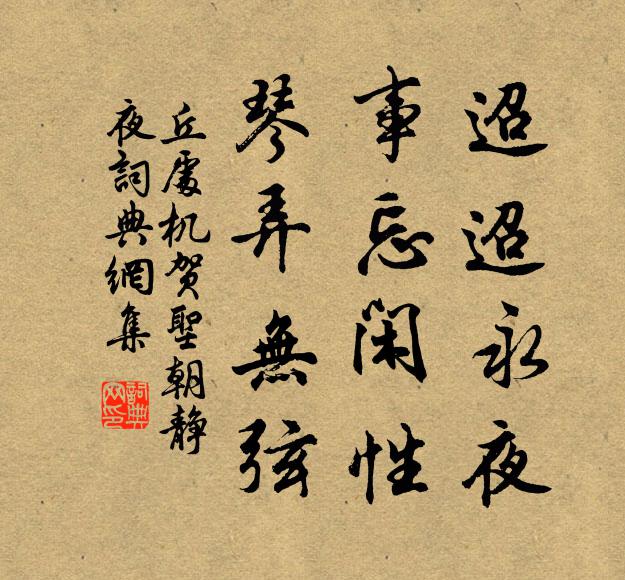 迢迢永夜
事忘闲性
琴弄無弦
丘處机贺聖朝静
夜詞典網集
詞典网印